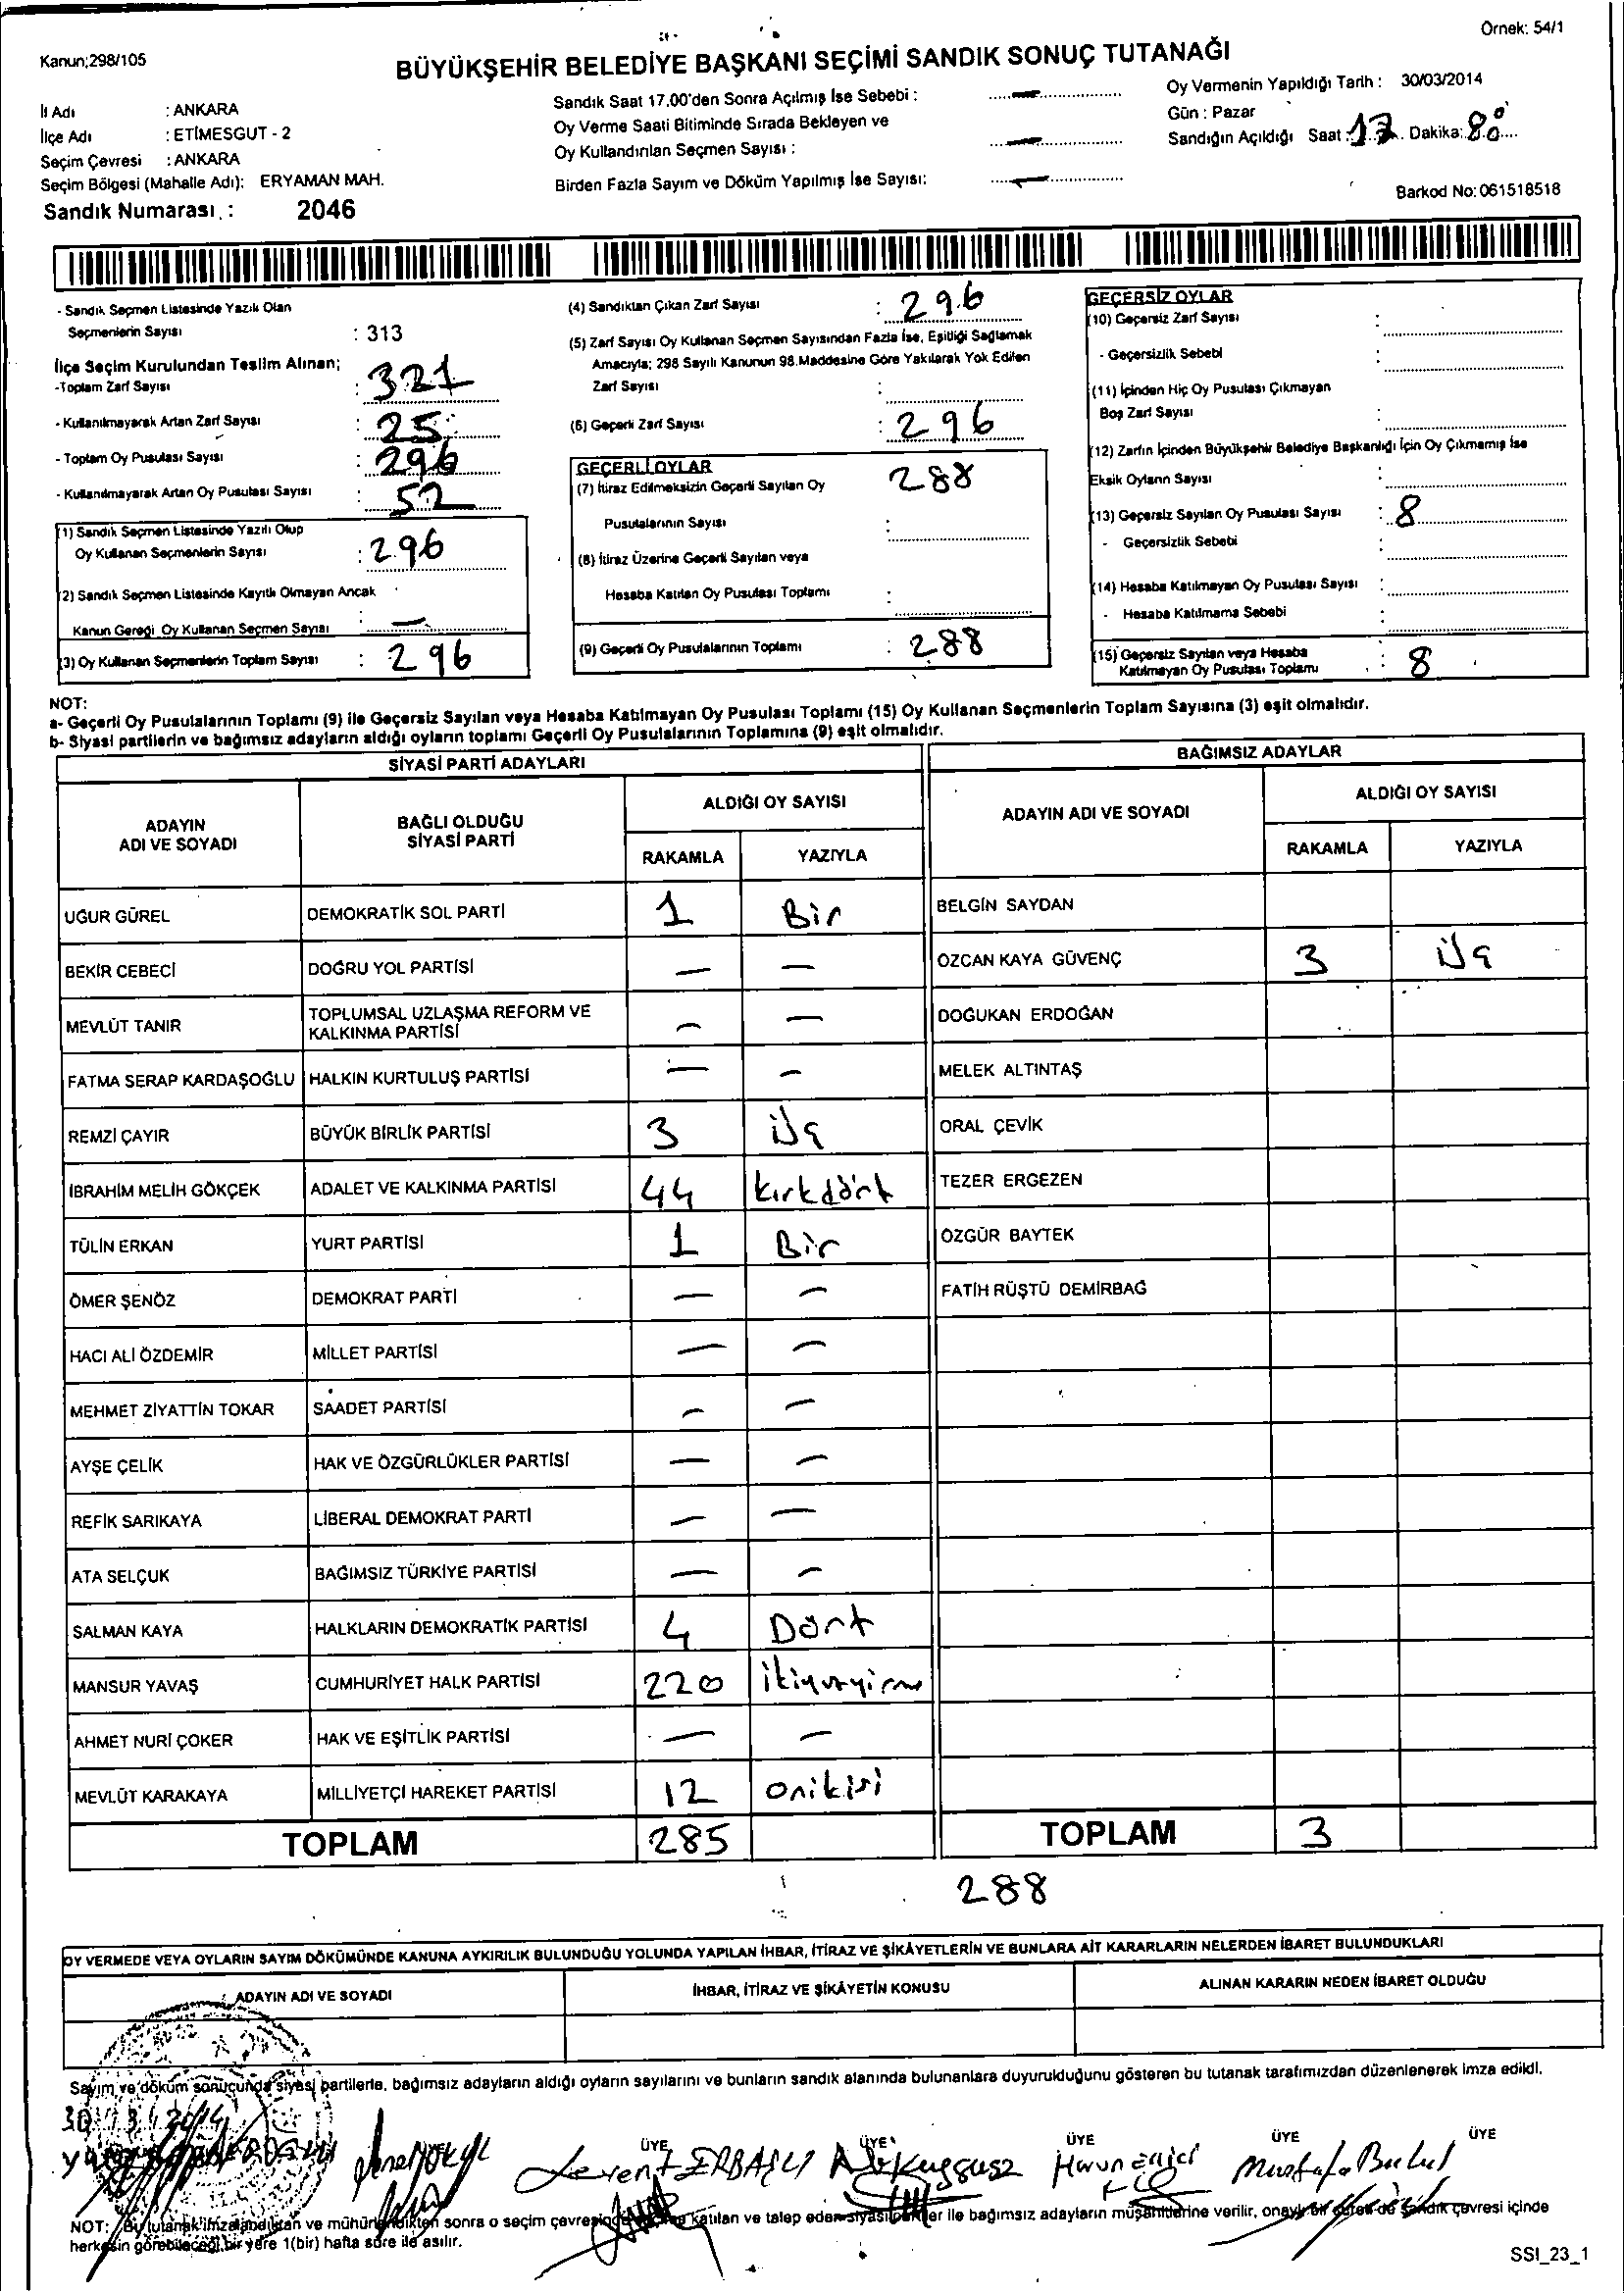 Örnek: 54/1
Kanun;298/105
BÜYÜKŞEHİR BELEDİYE BAŞKANI SEÇİMİ SANDIK SONUÇ TUTANAĞI
İl Adı : ANKARA
İlçe Adı : ETİMESGUT - 2
Seçim Çevresi : ANKARA
Seçim Bölgesi (Mahalle Adı): ERYAMAN MAH.
Sandık Numarası : 2046
Sandık Saat 17.00'den Sonra Açılmış İse Sebebi : —
Oy Verme Saati Bitiminde Sırada Bekleyen ve
Oy Kullandırılan Seçmen Sayısı : —
Birden Fazla Sayım ve Döküm Yapılmış İse Sayısı: —
Oy Vermenin Yapıldığı Tarih : 30/03/2014
Gün : Pazar
Sandığın Açıldığı Saat : 17 Dakika:
Barkod No: 061518518
- Sandık Seçmen Listesinde Yazılı Olan
Seçmenlerin Sayısı : 313
İlçe Seçim Kurulundan Teslim Alınan;
-Toplam Zarf Sayısı : 321
- Kullanılmayarak Artan Zarf Sayısı : 25
- Toplam Oy Pusulası Sayısı : 296
- Kullanılmayarak Artan Oy Pusulası Sayısı : 52
(1) Sandık Seçmen Listesinde Yazılı Olup
Oy Kullanan Seçmenlerin Sayısı : 296
(2) Sandık Seçmen Listesinde Kayıtlı Olmayan Ancak
Kanun Gereği Oy Kullanan Seçmen Sayısı : —
(3) Oy Kullanan Seçmenlerin Toplam Sayısı : 296
(4) Sandıktan Çıkan Zarf Sayısı : 296
(5) Zarf Sayısı Oy Kullanan Seçmen Sayısından Fazla İse, Eşitliği Sağlamak
Amacıyla; 298 Sayılı Kanunun 98.Maddesine Göre Yakılarak Yok Edilen
Zarf Sayısı :
(6) Geçerli Zarf Sayısı : 296
GEÇERLİ OYLAR
(7) İtiraz Edilmeksizin Geçerli Sayılan Oy 288
Pusulalarının Sayısı :
(8) İtiraz Üzerine Geçerli Sayılan veya
Hesaba Katılan Oy Pusulası Toplamı :
(9) Geçerli Oy Pusulalarının Toplamı : 288
GEÇERSİZ OYLAR
(10) Geçersiz Zarf Sayısı :
- Geçersizlik Sebebi :
(11) İçinden Hiç Oy Pusulası Çıkmayan
Boş Zarf Sayısı :
(12) Zarfın İçinden Büyükşehir Belediye Başkanlığı İçin Oy Çıkmamış İse
Eksik Oyların Sayısı :
(13) Geçersiz Sayılan Oy Pusulası Sayısı : 8
- Geçersizlik Sebebi :
(14) Hesaba Katılmayan Oy Pusulası Sayısı :
- Hesaba Katılmama Sebebi :
(15) Geçersiz Sayılan veya Hesaba
Katılmayan Oy Pusulası Toplamı : 8
NOT:
a- Geçerli Oy Pusulalarının Toplamı (9) ile Geçersiz Sayılan veya Hesaba Katılmayan Oy Pusulası Toplamı (15) Oy Kullanan Seçmenlerin Toplam Sayısına (3) eşit olmalıdır.
b- Siyasi partilerin ve bağımsız adayların aldığı oyların toplamı Geçerli Oy Pusulalarının Toplamına (9) eşit olmalıdır.
SİYASİ PARTİ ADAYLARI
ADAYIN ADI VE SOYADI BAĞLI OLDUĞU SİYASİ PARTİ ALDIĞI OY SAYISI
RAKAMLA YAZIYLA
UĞUR GÜREL DEMOKRATİK SOL PARTİ 1 Bir
BEKİR CEBECİ DOĞRU YOL PARTİSİ — —
MEVLÜT TANIR TOPLUMSAL UZLAŞMA REFORM VE KALKINMA PARTİSİ — —
FATMA SERAP KARDAŞOĞLU HALKIN KURTULUŞ PARTİSİ — —
REMZİ ÇAYIR BÜYÜK BİRLİK PARTİSİ 3 üç
İBRAHİM MELİH GÖKÇEK ADALET VE KALKINMA PARTİSİ 44 kırkdört
TÜLİN ERKAN YURT PARTİSİ 1 Bir
ÖMER ŞENÖZ DEMOKRAT PARTİ — —
HACI ALİ ÖZDEMİR MİLLET PARTİSİ — —
MEHMET ZİYATTİN TOKAR SAADET PARTİSİ — —
AYŞE ÇELİK HAK VE ÖZGÜRLÜKLER PARTİSİ — —
REFİK SARIKAYA LİBERAL DEMOKRAT PARTİ — —
ATA SELÇUK BAĞIMSIZ TÜRKİYE PARTİSİ — —
SALMAN KAYA HALKLARIN DEMOKRATİK PARTİSİ 4 Dört
MANSUR YAVAŞ CUMHURİYET HALK PARTİSİ 220
AHMET NURİ ÇOKER HAK VE EŞİTLİK PARTİSİ — —
MEVLÜT KARAKAYA MİLLİYETÇİ HAREKET PARTİSİ 12 onikisi
TOPLAM 285
BAĞIMSIZ ADAYLAR
ADAYIN ADI VE SOYADI ALDIĞI OY SAYISI
RAKAMLA YAZIYLA
BELGİN SAYDAN
ÖZCAN KAYA GÜVENÇ 3 üç
DOĞUKAN ERDOĞAN
MELEK ALTINTAŞ
ORAL ÇEVİK
TEZER ERGEZEN
ÖZGÜR BAYTEK
FATİH RÜŞTÜ DEMİRBAĞ
TOPLAM 3
288
OY VERMEDE VEYA OYLARIN SAYIM DÖKÜMÜNDE KANUNA AYKIRILIK BULUNDUĞU YOLUNDA YAPILAN İHBAR, İTİRAZ VE ŞİKÂYETLERİN VE BUNLARA AİT KARARLARIN NELERDEN İBARET BULUNDUKLARI
ADAYIN ADI VE SOYADI İHBAR, İTİRAZ VE ŞİKÂYETİN KONUSU ALINAN KARARIN NEDEN İBARET OLDUĞU
Sayım ve döküm sonucunda siyasi partilerle, bağımsız adayların aldığı oyların sayılarını ve bunların sandık alanında bulunanlara duyurulduğunu gösteren bu tutanak tarafımızdan düzenlenerek imza edildi.
30/3/2014
ÜYE ÜYE ÜYE ÜYE ÜYE
Levent ERBAŞLI Harun Mustafa Bulut
NOT: Bu tutanak imzalandıktan ve mühürlendikten sonra o seçim çevresinde seçime katılan ve talep eden siyasi partiler ile bağımsız adayların müşahitlerine verilir, onaylı bir sureti de sandık çevresi içinde
herkesin görebileceği bir yere 1(bir) hafta süre ile asılır.
SSI_23_1